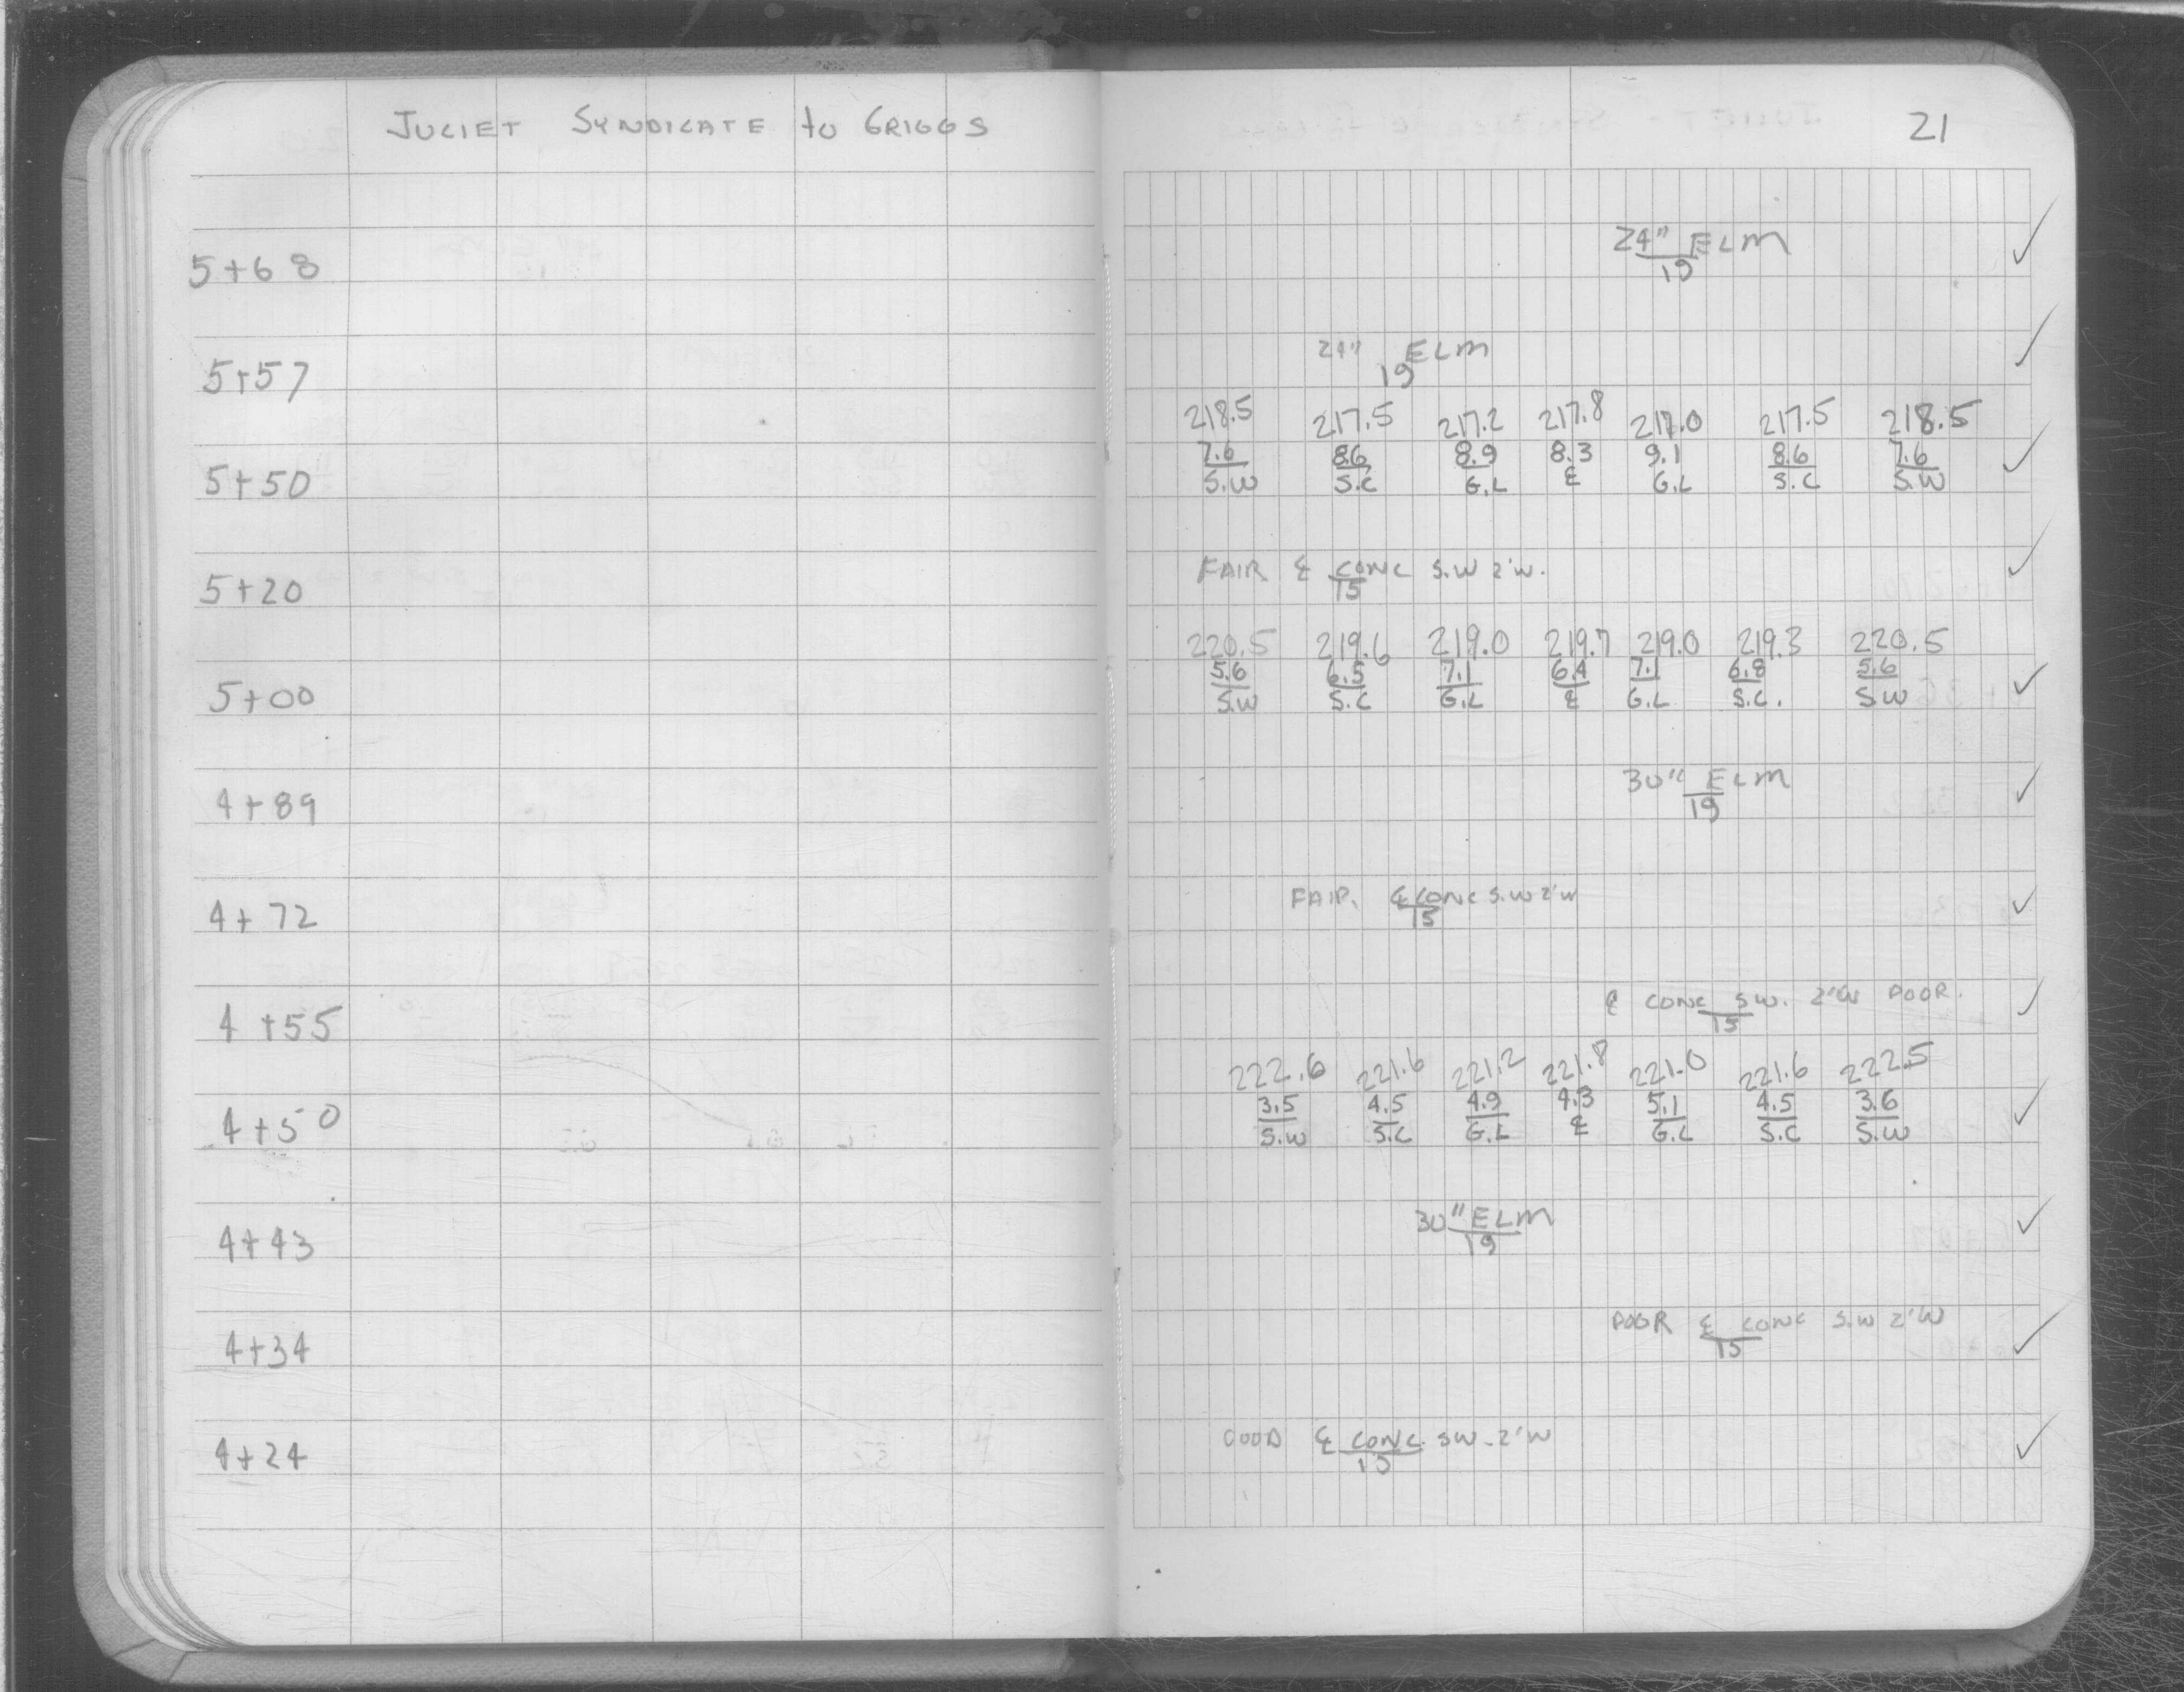 JULIET SYNDICATE to GRIGGS
21
5+68 24" ELM
19
5+57 24" ELM
19
218.5 217.5 217.2 217.8 217.0 217.5 218.5
5+50 7.6 8.6 8.9 8.3 9.1 8.6 7.6
S.W S.C G.L ℄ G.L S.C S.W
5+20 FAIR ℄ CONC S.W 2'W.
15
220.5 219.6 219.0 219.7 219.0 219.3 220.5
5+00 5.6 6.5 7.1 6.4 7.1 6.8 5.6
S.W S.C G.L ℄ G.L S.C. S.W
4+89 30" ELM
19
4+72 FAIR. ℄ CONC S.W 2'W
15
4+55 ℄ CONC S.W. 2'W POOR.
15
222.6 221.6 221.2 221.8 221.0 221.6 222.5
4+50 3.5 4.5 4.9 4.3 5.1 4.5 3.6
S.W S.C G.L ℄ G.L S.C S.W
4+43 30" ELM
19
4+34 POOR ℄ CONC S.W 2'W
15
4+24 GOOD ℄ CONC. S.W-2'W
15